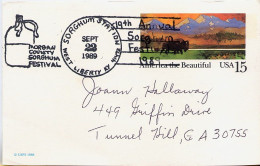 MORGAN
COUNTY
SORGHUM
FESTIVAL
SORGHUM STATION
SEPT
1989
WEST LIBERTY KY
19th Annual
Sorghum
Festival
1989
America the Beautiful USA 15
Joann Hollaway
449 Griffin Drive
Tunnel Hill, GA 30755